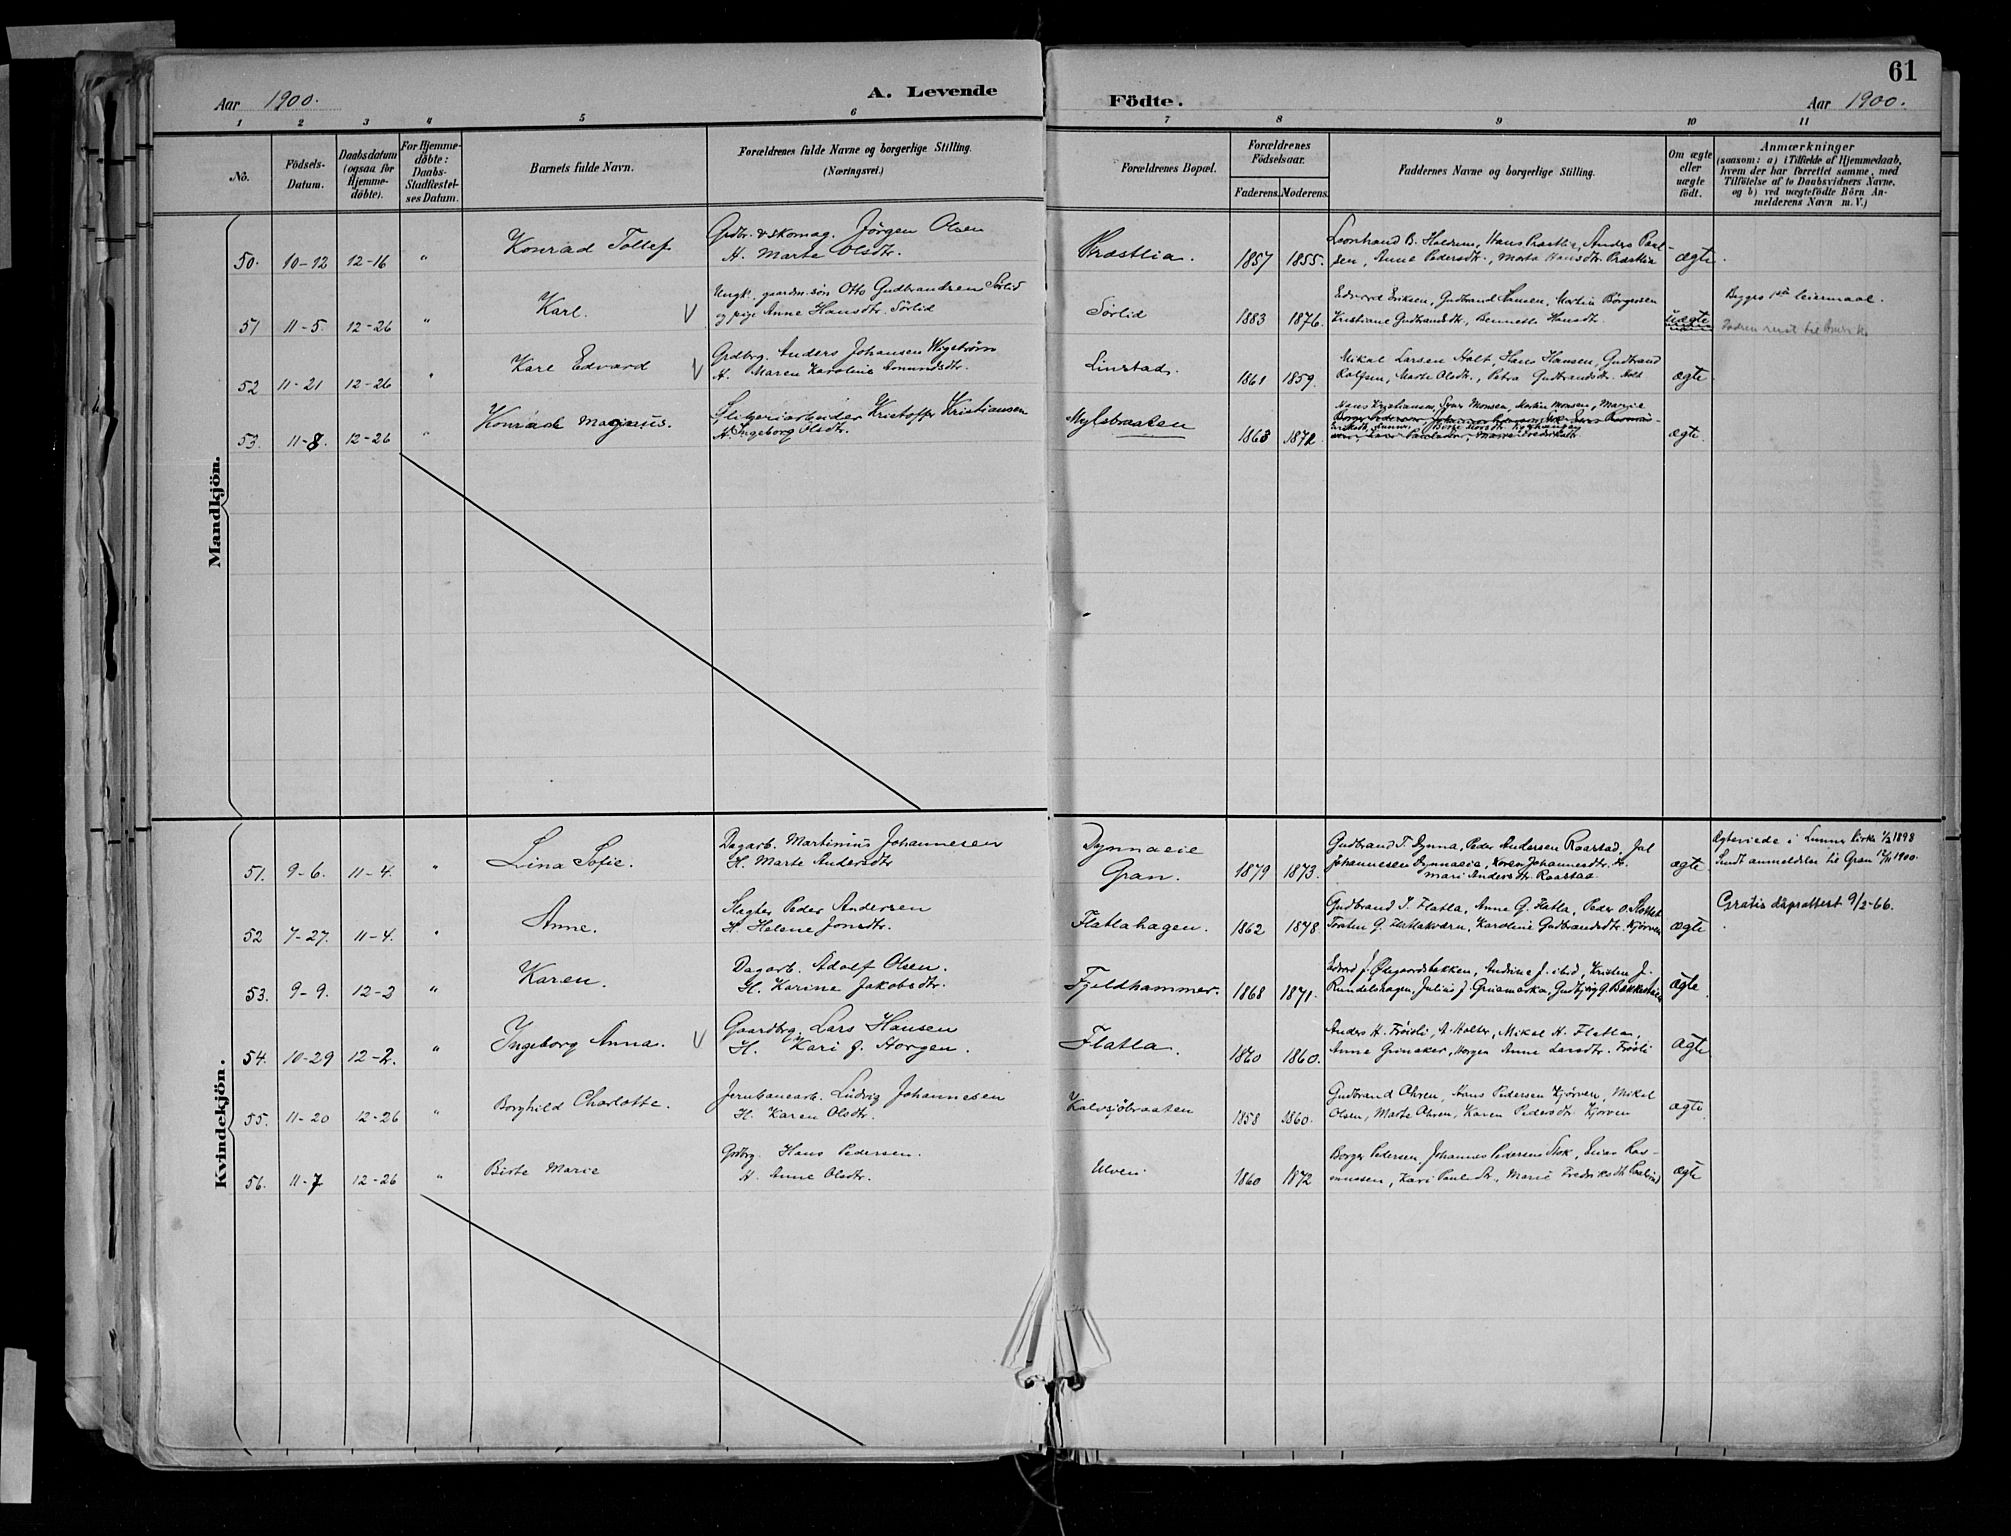 61
Aar 1900.
A. Levende
Födte.
Aar 1900.
1 2 3 4 5 6 7 8 9 10 11
No.
Födsels-
Datum.
Daabsdatum
(ogsaa for
Hjemme-
döbte).
For Hjemme-
döbte:
Daabs-
Stadfæstel-
ses Datum.
Barnets fulde Navn.
Forældrenes fulde Navne og borgerlige Stilling.
(Næringsvei.)
Forældrenes Bopæl.
Forældrenes
Födselsaar.
Faderens. Moderens.
Faddernes Navne og borgerlige Stilling.
Om ægte
eller
uægte
födt.
Anmærkninger
(saasom: a) i Tilfælde af Hjemmedaab,
hvem der har forrettet samme, med
Tilföielse af to Daabsvidners Navne,
og b) ved uægtefödte Börn An-
melderens Navn m. V.)
Mandkjön.
50. 10-12 12-16 " Konrad Tollef
Grdbr. & skomag. Jörgen Olsen
H. Marte Olsdtr.
Præstlia. 1857 1855.
Leonhard B. Haldrum, Hans Præstlia, Anders Paul-
sen, Anne Pedersdtr., Marta Hansdtr. Præstlia
ægte.
51 11-5. 12-26 " Karl. V
Ungk. gaardm.søn Otto Gudbrandsen Sörlid
og pige Anne Hansdtr. Sörlid
Sörlid 1883 1876.
Edvard Eriksen, Gudbrand Hansen, Martin Börgersen
Kristiane Gudbrandsdtr., Hansdtr.
uægte
Begges 1ste leiermaal.
Faderen reist til Amerika
52 11-21 12-26 " Karl Edvard V
Grdbrg. Anders Johansen Wigström
H. Maren Karoline Amundsdtr.
Linstad. 1861 1859.
Mikal Larsen Holt, Hans Hansen, Gudbrand
Rolfsen, Marte Olsdtr., Petra Gudbrandsdtr. Holt
ægte.
53. 11-8. 12-26 " Konrad Magnus.
Sliberiarbeider Kristoffer Kristiansen
H. Ingeborg Olsdtr.
Myllabraaten 1863 1872.
Hans Kristiansen, Syver Monsen, Martin Monsen, Marie
ægte.
Kvindekjön.
51. 9-6. 11-4. " Lina Sofie.
Dagarb. Martinius Johannesen
H. Marte Andersdtr
Dynnaeie
Gran. 1879 1873.
Gudbrand T. Dynna, Peder Andersen Raastad, Jul
Johannesen Dynnaeie, Karen Johannesdtr. ib.
Mari Andersdtr. Raastad
ægte
Ægteviede i Lunner Kirke 1/2 1898
Sendt anmeldelse til Gran 12/11 1900.
52 7-27. 11-4. " Anne.
Slagter Peder Andersen
H. Helene Jonsdtr.
Flatlahagen. 1862 1878.
Gudbrand I. Flatla, Anne G. Flatla, Peder O. Slottet
Torsten G. Flatlakværn, Karoline Gudbrandsdtr. Kjörven
ægte
Gratis dåpsattest 9/2-66.
53. 9-9. 12-2 " Karen.
Dagarb. Adolf Olsen.
H. Karine Jakobsdtr.
Fjeldhammer. 1868 1871.
Edvard J. Ølgaardsbakken, Andrine J. ibid, Kristen J.
Rundelshagen, Julius J. Grinamarka, Gudbjörg G. Bakkestuen
ægte.
54. 10-29 12-2. " Ingeborg Anna. V
Gaardbrg. Lars Hansen
H. Kari J. Horgen.
Flatla. 1860 1860.
Anders H. Fröisli, A. Molter, Mikal H. Flatla,
Anne Grinaker, Horgen Anne Larsdtr. Fröisli
ægte
55. 11-20 12-26 " Borghild Charlotte.
Jernbanearb. Ludvig Johannesen
H. Karen Olsdtr.
Kalvsjöbraaten 1858 1860.
Gudbrand Ohren, Hans Pedersen Kjörven, Mikal
Olsen, Marte Ohren, Karen Pedersdtr. Kjörven
ægte
56. 11-7 12-26 " Birte Marie
Grdbrg. Hans Pedersen.
H. Anne Olsdtr.
Ulven. 1860 1872
Borger Pedersen, Johannes Pedersen Stok, Enas Ras-
mussen, Kari Paulsdtr., Marie Fredriksdtr Paalsrud
ægte